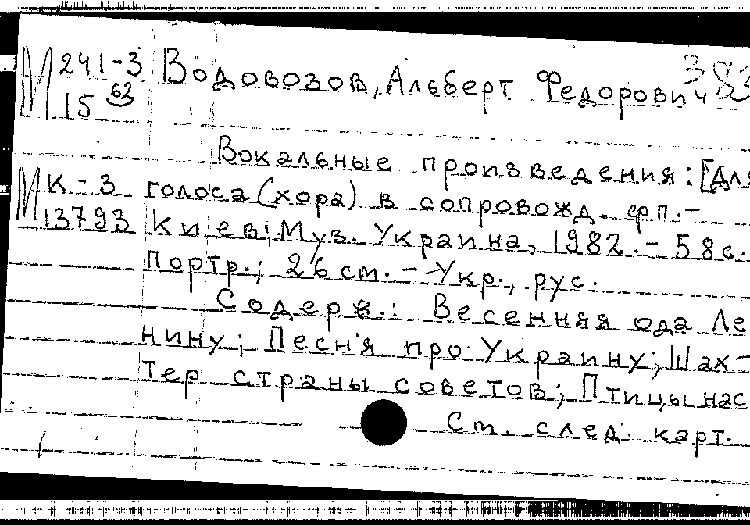 М 241-3 Водовозов, Альберт Федорович 383
15 63
Вокальные произведения: [Для
М К-3 голоса (хора) в сопровожд. фп.-
13793 Киев: Муз. Украина, 1982.- 58 с.
портр.; 26 см. - Укр., рус.
Содерж.: Весенняя ода Ле
нину; Песня про Украину; Шах-
тер страны советов; Птицы нас
См. след. карт.